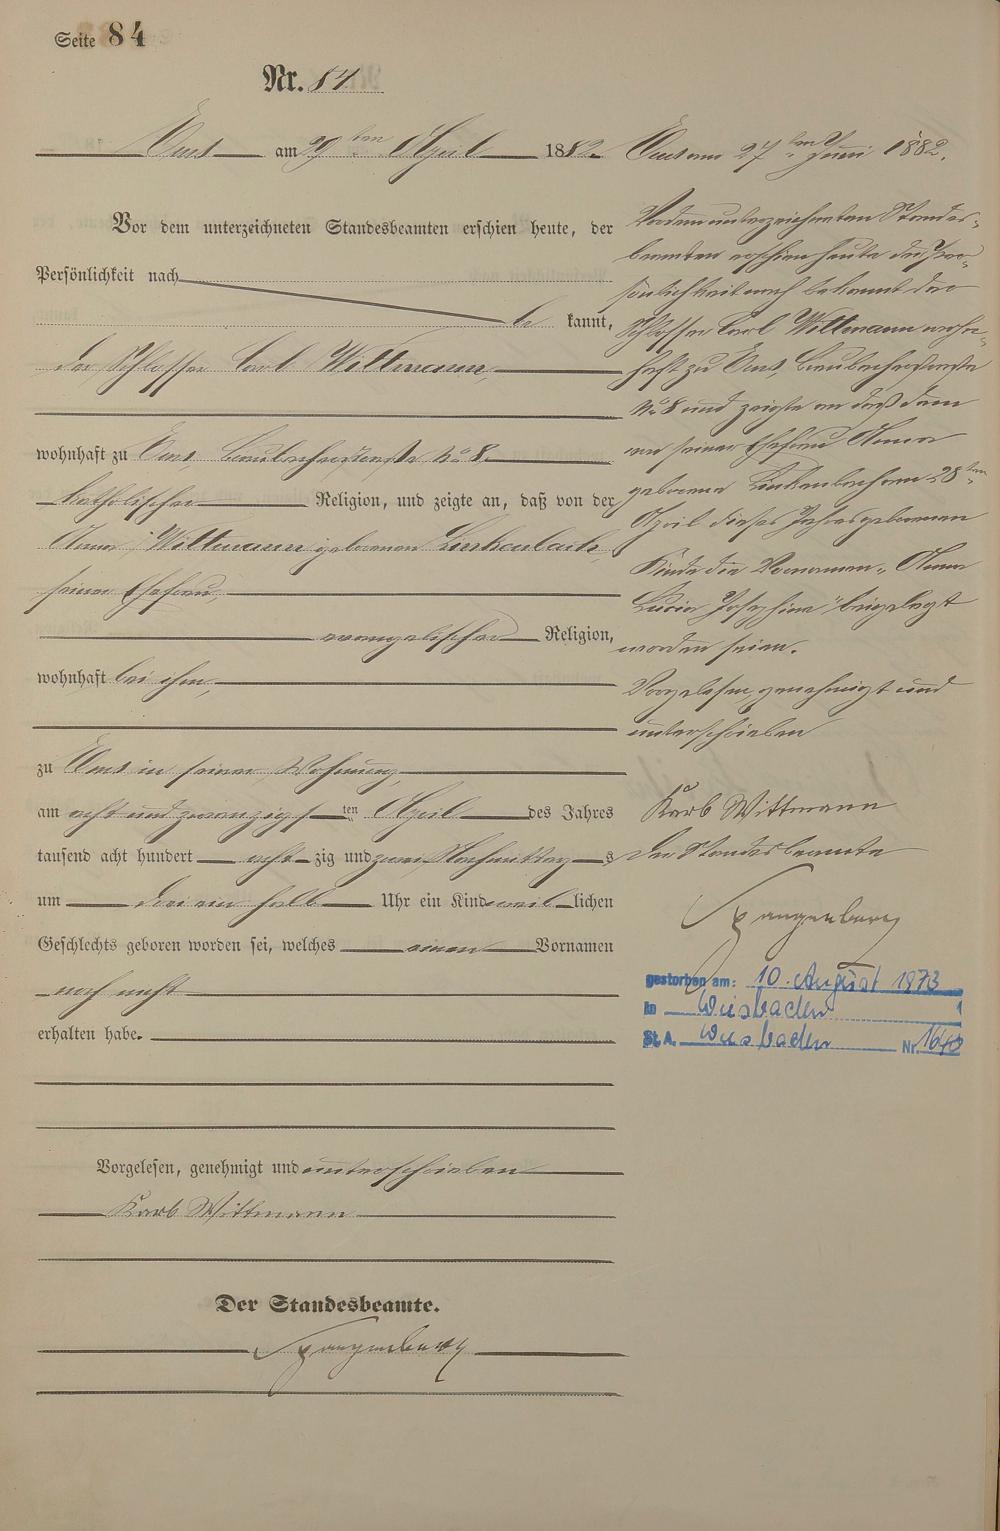 Seite 84
Nr. 84
Ems am 29ten April 1882.
Vor dem unterzeichneten Standesbeamten erschien heute, der
Persönlichkeit nach
be kannt,
der Schlosser Carl Wittmann,
wohnhaft zu Ems, No 8.
katholischer Religion, und zeigte an, daß von der
Anna Wittmann geborenen Linkenbach,
seiner Ehefrau,
evangelischer Religion,
wohnhaft bei ihm,
zu Ems in seiner Wohnung,
am acht und zwanzigsten April des Jahres
tausend acht hundert acht zig und zwei Nachmittags
um drei ein halb Uhr ein Kind weiblichen
Geschlechts geboren worden sei, welches einen Vornamen
noch nicht
erhalten habe.
Vorgelesen, genehmigt und unterschrieben
Karl Wittmann
Der Standesbeamte.
Spangenberg
Ems am 27ten Juni 1882.
Vor dem unterzeichneten Standes-
beamten erschien heute der Per-
sönlichkeit nach bekannt der
Schlosser Carl Wittmann wohn-
haft zu Ems,
No 8 und zeigte an daß dem
von seiner Ehefrau Anna
geborene Linkenbach am 28ten
April dieses Jahres geborenen
Kinde die Vornamen „Anna
Lucia Josephine" beigelegt
worden seien.
Vorgelesen, genehmigt und
unterschrieben
Karl Wittmann
Der Standesbeamte
Spangenberg
gestorben am: 10. August 1973
in Wiesbaden
St. A. Wiesbaden Nr.